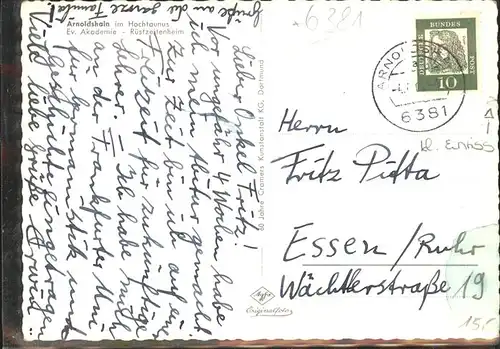 Grüße an die ganze Familie!
Arnoldshain im Hochtaunus
Ev. Akademie - Rüstzeitenheim
Lieber Onkel Fritz!
Vor ungefähr 4 Wochen habe
ich mein Abitur gemacht.
Zur Zeit bin ich auf einer
Freizeit für zukünftige
Lehrer. Ich habe mich
an der Frankfurter Uni
für Germanistik und
Geschichte eingetragen
Viele liebe Grüße
60 Jahre Cramers Kunstanstalt KG, Dortmund
Originalfoto
6381
DEUTSCHE
BUNDES
POST
10
ARNOL
6381
Herrn
Fritz Pitta
Essen/Ruhr
Wächtlerstraße 19
15